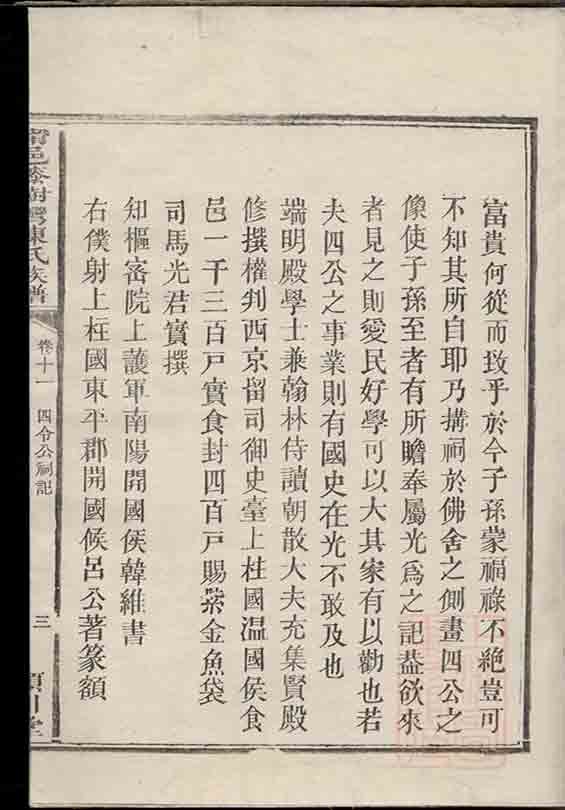 富貴何從而致乎於今子孫蒙福祿不絶豈可
不知其所自耶乃搆祠於佛舍之側畫四公之
像使子孫至者有所瞻奉屬光爲之記葢欲來
者見之則愛民好學可以大其家有以勸也若
夫四公之事業則有國史在光不敢及也
端明殿學士兼翰林侍讀朝散大夫充集賢殿
修撰權判西京留司御史臺上柱國温國侯食
邑一千三百戸實食封四百戸賜紫金魚袋
司馬光君實撰
知樞密院上護軍南陽開國侯韓維書
右僕射上柱國東平郡開國候呂公著篆額
陳氏族譜
卷十一
四令公祠記
三